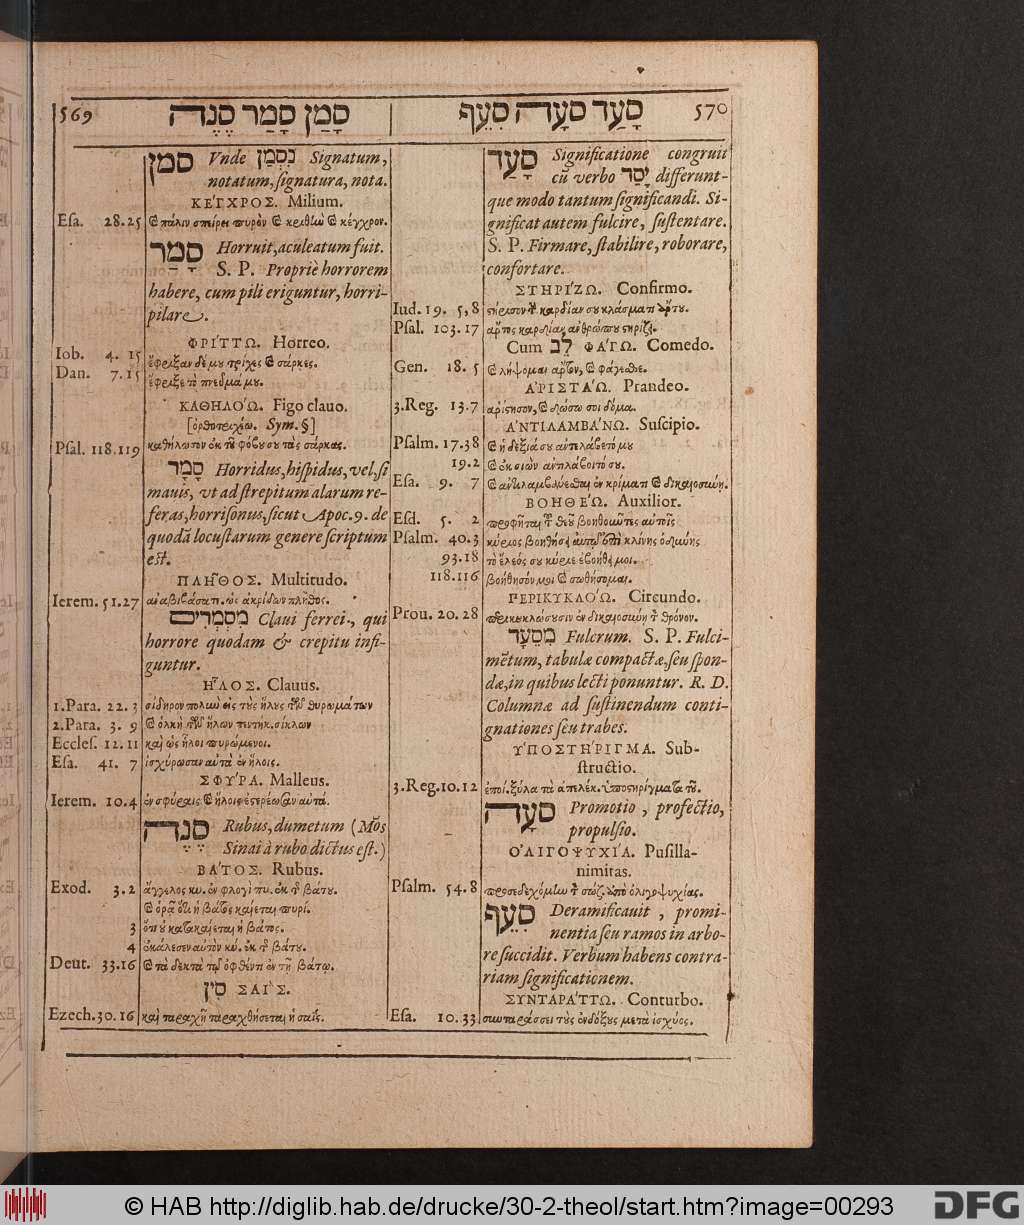 569
סָמַן סָמַר סְנֶה
סמן Vnde נִסְמַן Signatum,
notatum, ſignatura, nota.
ΚΕΓΧΡΟΣ. Milium.
Eſa. 28.25 ϗ πάλιν σπείρει πυρὸν ϗ κριθὴν ϗ κέγχρον.
סמר Horruit, aculeatum fuit.
S. P. Propriè horrorem
habere, cum pili eriguntur, horri-
pilare.
ΦΡΙΤΤΩ. Horreo.
Iob. 4. 15 ἔφριξαν δέ μου τρίχες ϗ σάρκες.
Dan. 7.15 ἔφριξε τὸ πνεῦμα μου.
ΚΑΘΗΛΟΏ. Figo clauo.
[ὀρθοτριχέω. Sym. §]
Pſal. 118.119 καθήλωσον ἐκ τοῦ φόβου σου τὰς σάρκας.
סָמָר Horridus, hiſpidus, vel, ſi
mauis, vt ad ſtrepitum alarum re-
feras, horriſonus, ſicut Apoc. 9. de
quodā locuſtarum genere ſcriptum
eſt.
ΠΛΗ͂ΘΟΣ. Multitudo.
Ierem. 51.27 ἀναβιβάσατε. ὡς ἀκρίδων πλῆθος.
מַסְמְרִים Claui ferrei., qui
horrore quodam & crepitu infi-
guntur.
Η῟ΛΟΣ. Clauus.
1.Para. 22. 3 σίδηρον πολιὼ εἰς τοὺς ἥλους τῶν θυρωμάτων
2.Para. 3. 9 ϗ ὁλκὴ τῶν ἥλων πεντήκ. σίκλων
Eccleſ. 12. 11 καὶ ὡς ἧλοι πυρώμενοι.
Eſa. 41. 7 ἰσχύρωσαν αὐτὰ ἐν ἥλοις.
ΣΦΥΡΑ. Malleus.
Ierem. 10.4 ἐν σφύραις ϗ ἥλοις ἐστερέωσαν αὐτά.
סנה Rubus, dumetum (Mōs
Sinai à rubo dictus eſt.)
ΒΑΤΟΣ. Rubus.
Exod. 3. 2 ἄγγελος κυ. ἐν φλογὶ πυ. ἐκ τ βάτου.
ϗ ὁρᾷ ὅτι ἡ βάτος καίεται πυρί.
3 ὅτι οὐ κατακαίεται ἡ βάτος.
4 ἐκάλεσεν αὐτὸν κύ. ἐκ τ βάτου.
Deut. 33.16 ϗ τὰ δεκτὰ τῷ ὀφθέντι ἐν τῇ βάτῳ.
סִין ΣΑΙΣ.
Ezech. 30. 16 καὶ ταραχῇ ταραχθήσεται ἡ σαΐς.
570
סָעַד סָעָה סְעֵף
סָעַד Significatione congruit
cū verbo יָסַד differunt-
que modo tantum ſignificandi. Si-
gnificat autem fulcire, ſuſtentare.
S. P. Firmare, ſtabilire, roborare,
confortare.
ΣΤΗΡΙΖΩ. Confirmo.
Iud. 19. 5,8 στήρισον τ καρδίαν σου κλάσματι ἄρτου.
Pſal. 103. 17 ἄρτος καρδίαν ἀνθρώπου στηρίζ.
Cum לֵב ΦΑΓΩ. Comedo.
Gen. 18. 5 ϗ λήψομαι ἄρτον, ϗ φάγεσθε.
ΑΡΙΣΤΑΏ. Prandeo.
3.Reg. 13.7 ἀρίστησον, ϗ δώσω σοι δόμα.
ΑΝΤΙΛΑΜΒΑΝΩ. Suſcipio.
Pſalm. 17.38 ϗ ἡ δεξιά σου ἀντελάβετό μου
19.2 ϗ ἐκ σιὼν ἀντιλάβοιτό σου.
Eſa. 9. 7 ϗ ἀντιλαμβάνεσθαι ἐν κρίματι ϗ δικαιοσύνῃ.
ΒΟΗΘΕΏ. Auxilior.
Eſd. 5. 2 προφῆται τ θεοῦ βοηθοῦντες αὐτοῖς
Pſalm. 40.3 κύριος βοηθήσῃ αὐτῷ ἐπὶ κλίνης ὀδύνης
93.18 τὸ ἔλεός σου κύριε ἐβοήθει μοι.
118.116 βοήθησόν μοι ϗ σωθήσομαι.
ΠΕΡΙΚΥΚΛΟΏ. Circundo.
Prou. 20. 28 περικυκλώσουσιν ἐν δικαιοσύνῃ τ θρόνον.
מִסְעָד Fulcrum. S. P. Fulci-
mētum, tabulæ compactæ, ſeu ſpon-
dæ, in quibus lecti ponuntur. R. D.
Columnæ ad ſuſtinendum conti-
gnationes ſeu trabes.
ΥΠΟΣΤΗΡΙΓΜΑ. Sub-
ſtructio.
3.Reg. 10.12 ἐποί. ξύλα τὰ ἀπελέκ. ὑποστηρίγματα τοῦ.
סָעָה Promotio, profectio,
propulſio.
ΟΛΙΓΟΨΥΧΙΑ. Puſilla-
nimitas.
Pſalm. 54.8 προσεδεχόμην τ σώζ. ἀπὸ ὀλιγοψυχίας.
סְעֵף Deramificauit, promi-
nentia ſeu ramos in arbo-
re ſuccidit. Verbum habens contra-
riam ſignificationem.
ΣΥΝΤΑΡΑΤΤΩ. Conturbo.
Eſa. 10.33 συνταράσσει τοὺς ἐνδόξους μετὰ ἰσχύος.
© HAB http://diglib.hab.de/drucke/30-2-theol/start.htm?image=00293
DFG